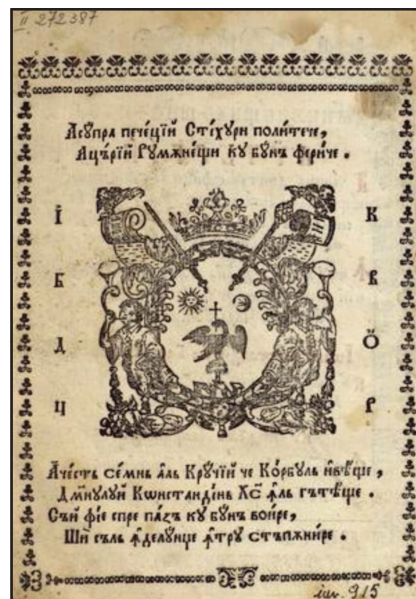 II 272387
Асꙋпра печецїй Стїхꙋри поли́тече,
Ацъ́рїй Рꙋмѫне́щи кꙋ бꙋнъ фери́че.
І҆ К
Б В
Д Ѻ
Ц Р
Аче́стъ се́мнь а҆ль Крꙋ́чїй че Ко́рбꙋль и҆вѣ́ще,
Дм҃нꙋлꙋй Кѡнстандїнь Хс҃ а҆ль гътѣ́ще.
Съй фїе спре па́zъ кꙋ бꙋнъ вои́ре,
Шѝ съль ꙟ҆делꙋнце ꙟ҆трꙋ стъпѫни́ре.
inv. 915